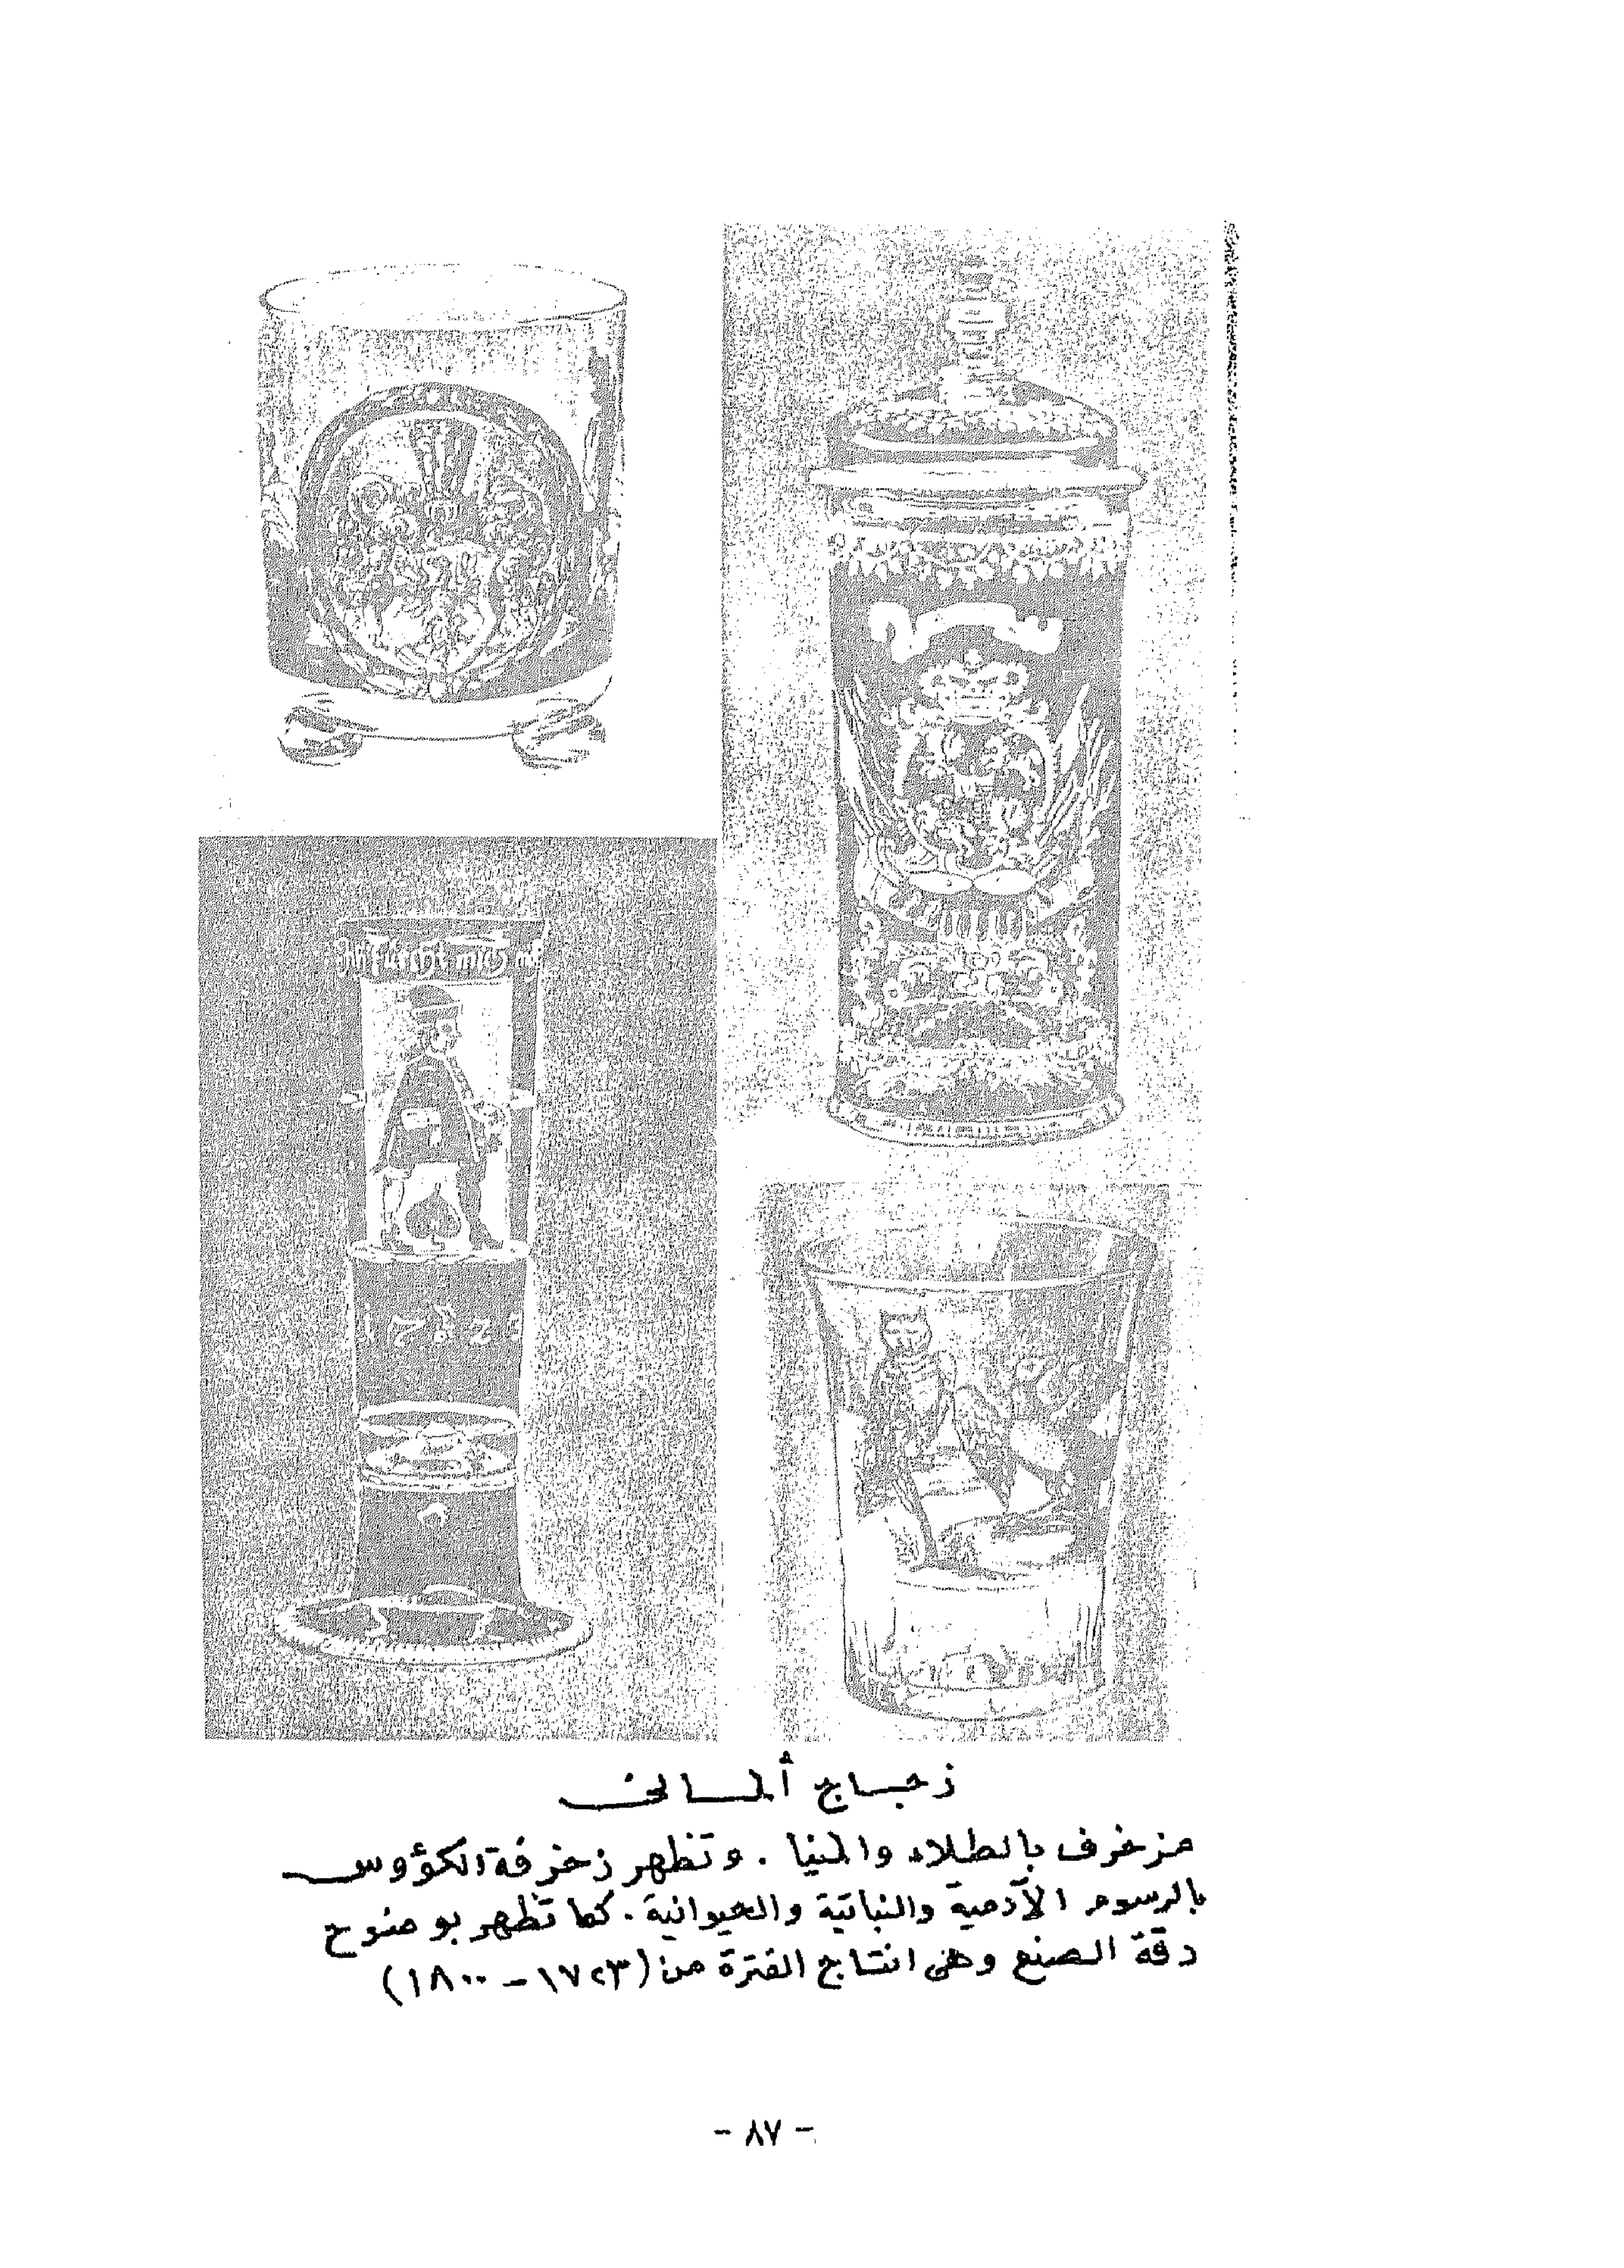 Ich fürcht mich
1723
زجاج ألمانى
مزخرف بالطلاء والمينا . وتظهر زخرفة الكؤوس
بالرسوم الآدمية والنباتية والحيوانية . كما تظهر بوضوح
دقة الصنع وهى انتاج الفترة من (١٧٢٣ - ١٨٠٠)
- ٨٧ -